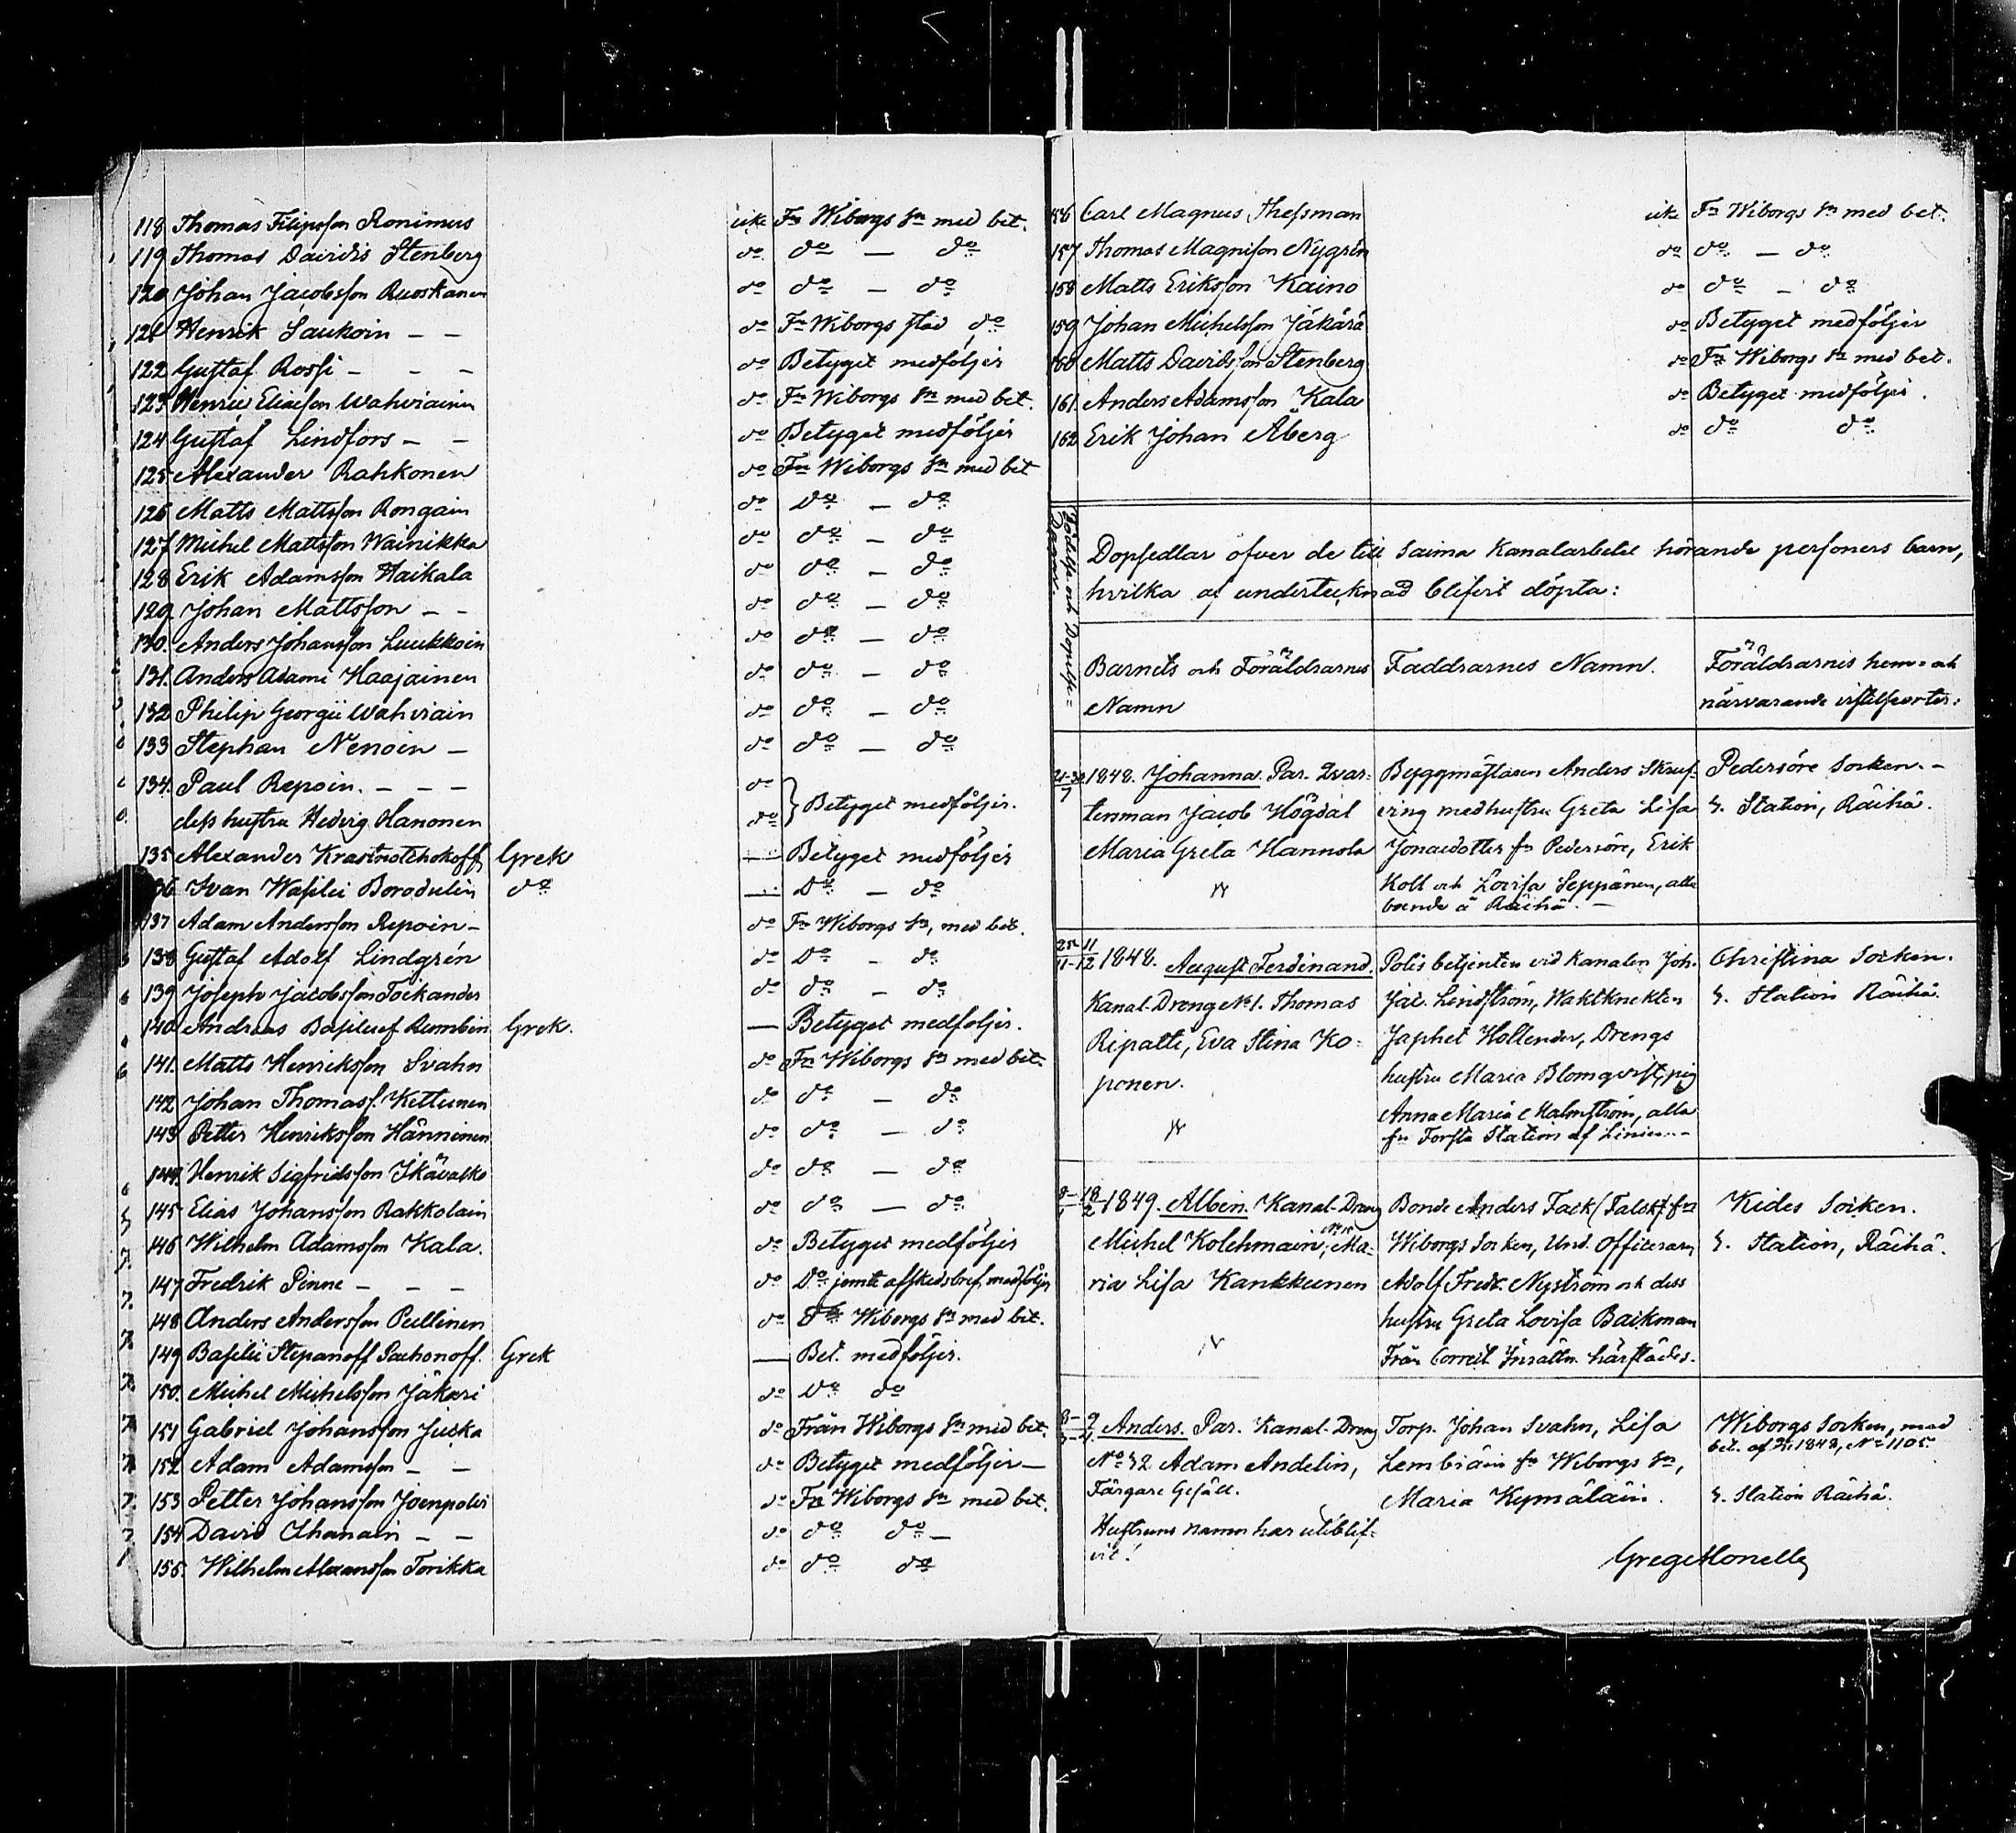 118 Thomas Filipsson Ronimus uti Frn Wiborgs Sn med bet.
119 Thomas Davidis Stenberg do do — do
120 Johan Jacobsson Ruoskanen do do — do
121 Henrik Saukoin — — do Frn Wiborgs stad, do
122 Gustaf Rossi — — — do Betyget medföljer
123 Henric Eliasson Wahviainen do Frn Wiborgs Sn med bet.
124 Gustaf Lindfors — — do Betyget medföljer
125 Alexander Rahkonen do Frn Wiborgs Sn med bet
126 Matts Mattsson Rongain do Do — do
127 Michel Mattsson Wainikka do do — do
128 Erik Adamsson Haikala do do — do
129 Johan Mattsson — — do do — do
130. Anders Johansson Luukkoin do do — do
131. Anders Adami Kaajainen do do — do
132 Philip Georgii Wahviain do do — do
133 Stephan Nenoin — do do — do
134. Paul Repoin. — — — do
dess hustru Hedvig Hanonen do } Betyget medföljer.
135 Alexander Krastnotchokoff Grek — Betyget medföljer
136 Ivan Wasilii Borodulin do — Do — do
137 Adam Andersson Repoin — do Frn Wiborgs Sn, med bet.
138 Gustaf Adolf Lindgrén do Do — do
139 Joseph Jacobsson Tockander do do — do
140 Andreas Basilief Rumbin Grek. — Betyget medföljer.
141. Matts Henriksson Svahn do Frn Wiborgs Sn med bet.
142 Johan Thomass. Kettunen do do — do
143 Petter Henriksson Hänninen do do — do
144. Henrik Sigfridsson Ikävalko do do — do
145 Elias Johansson Rakkolain do do — do
146 Wilhelm Adamsson Kala. do Betyget medföljer
147 Fredrik Pinne — — — do Do jemte afskedsbref medföljer
148 Anders Andersson Pullinen do Frn Wiborgs Sn med bet.
149 Basilii Stepanoff Pachonoff. Grek — Bet. medföljer.
150. Michel Michelsson Jäkäri do Do do
151 Gabriel Johansson Juska do Från Wiborgs Sn med bet.
152 Adam Adamsson — — do Betyget medföljer —
153 Petter Johansson Joenpolvi do Frn Wiborgs Sn med bet.
154 David Ahanain — — do do do —
155. Wilhelm Alexansson Torikka do do do
156 Carl Magnus Thessman uti Frn Wiborgs Sn med bet.
157 Thomas Magnisson Nygrén do do — do
158 Matts Eriksson Kaino do do — do
159 Johan Michelsson Jäkärä do Betyget medföljer
160 Matts Davidsson Stenberg do Frn Wiborgs Sn med bet.
161. Anders Adamsson Kala do Betyget medföljer.
162 Erik Johan Åberg do do do
Födelse och Dopelse-
Dagar.
Dopsedlar öfver de till Saima Kanalarbetet hörande personers barn,
hvilka af undertecknad blifvit döpta:
Barnets och Föräldrarnes
Namn
Faddrarnes Namn.
Föräldrarnes hem- och
närvarande vistelseorter.
1848. Johanna. Par. Qvar-
tenman Jacob Högdal
Maria Greta Hannola
Byggmästaren Anders Skruf-
ving med hustru Greta Lisa
Jonaedotter frn Pedersöre, Erik
Koll och Lovisa Seppänen, alla
boende å Räihä. —
Pedersöre Socken. —
4. Station, Räihä.
1848. August Ferdinand.
Kanal-Dreng No 1. Thomas
Ripatti, Eva Stina Ko-
ponen.
Polis betjenten vid kanalen Joh.
Jac. Lindström, Waktknekten
Japhet Hollender, Drengs
hustru Maria Blomqvist, pig
Anna Maria Malmström, alla
frn Första Station af Linien. —
Christina Socken.
4. Station Räihä.
1849. Albin. Kanal-Dreng
Michel Kolehmain, Ma-
ria Lisa Kankkunen
Bonde Anders Fack (Falck) frn
Wiborgs Socken, Und. Officeraren
Adolf Fredr. Nyström och dess
hustru Greta Lovisa Backman
Från Corret Inrättn. härstädes.
Kides Socken.
4. Station, Räihä.
Anders. Par. Kanal-Dreng
No 42 Adam Andelin,
Färgare Gesäll.
Hustruns namn har uteblif-
vit!
Torp. Johan Svahn, Lisa
Lembiäin frn Wiborgs Sn,
Maria Kymäläin.
Wiborgs Socken, med
bet. af 1848, No 1105.
4. Station Räihä.